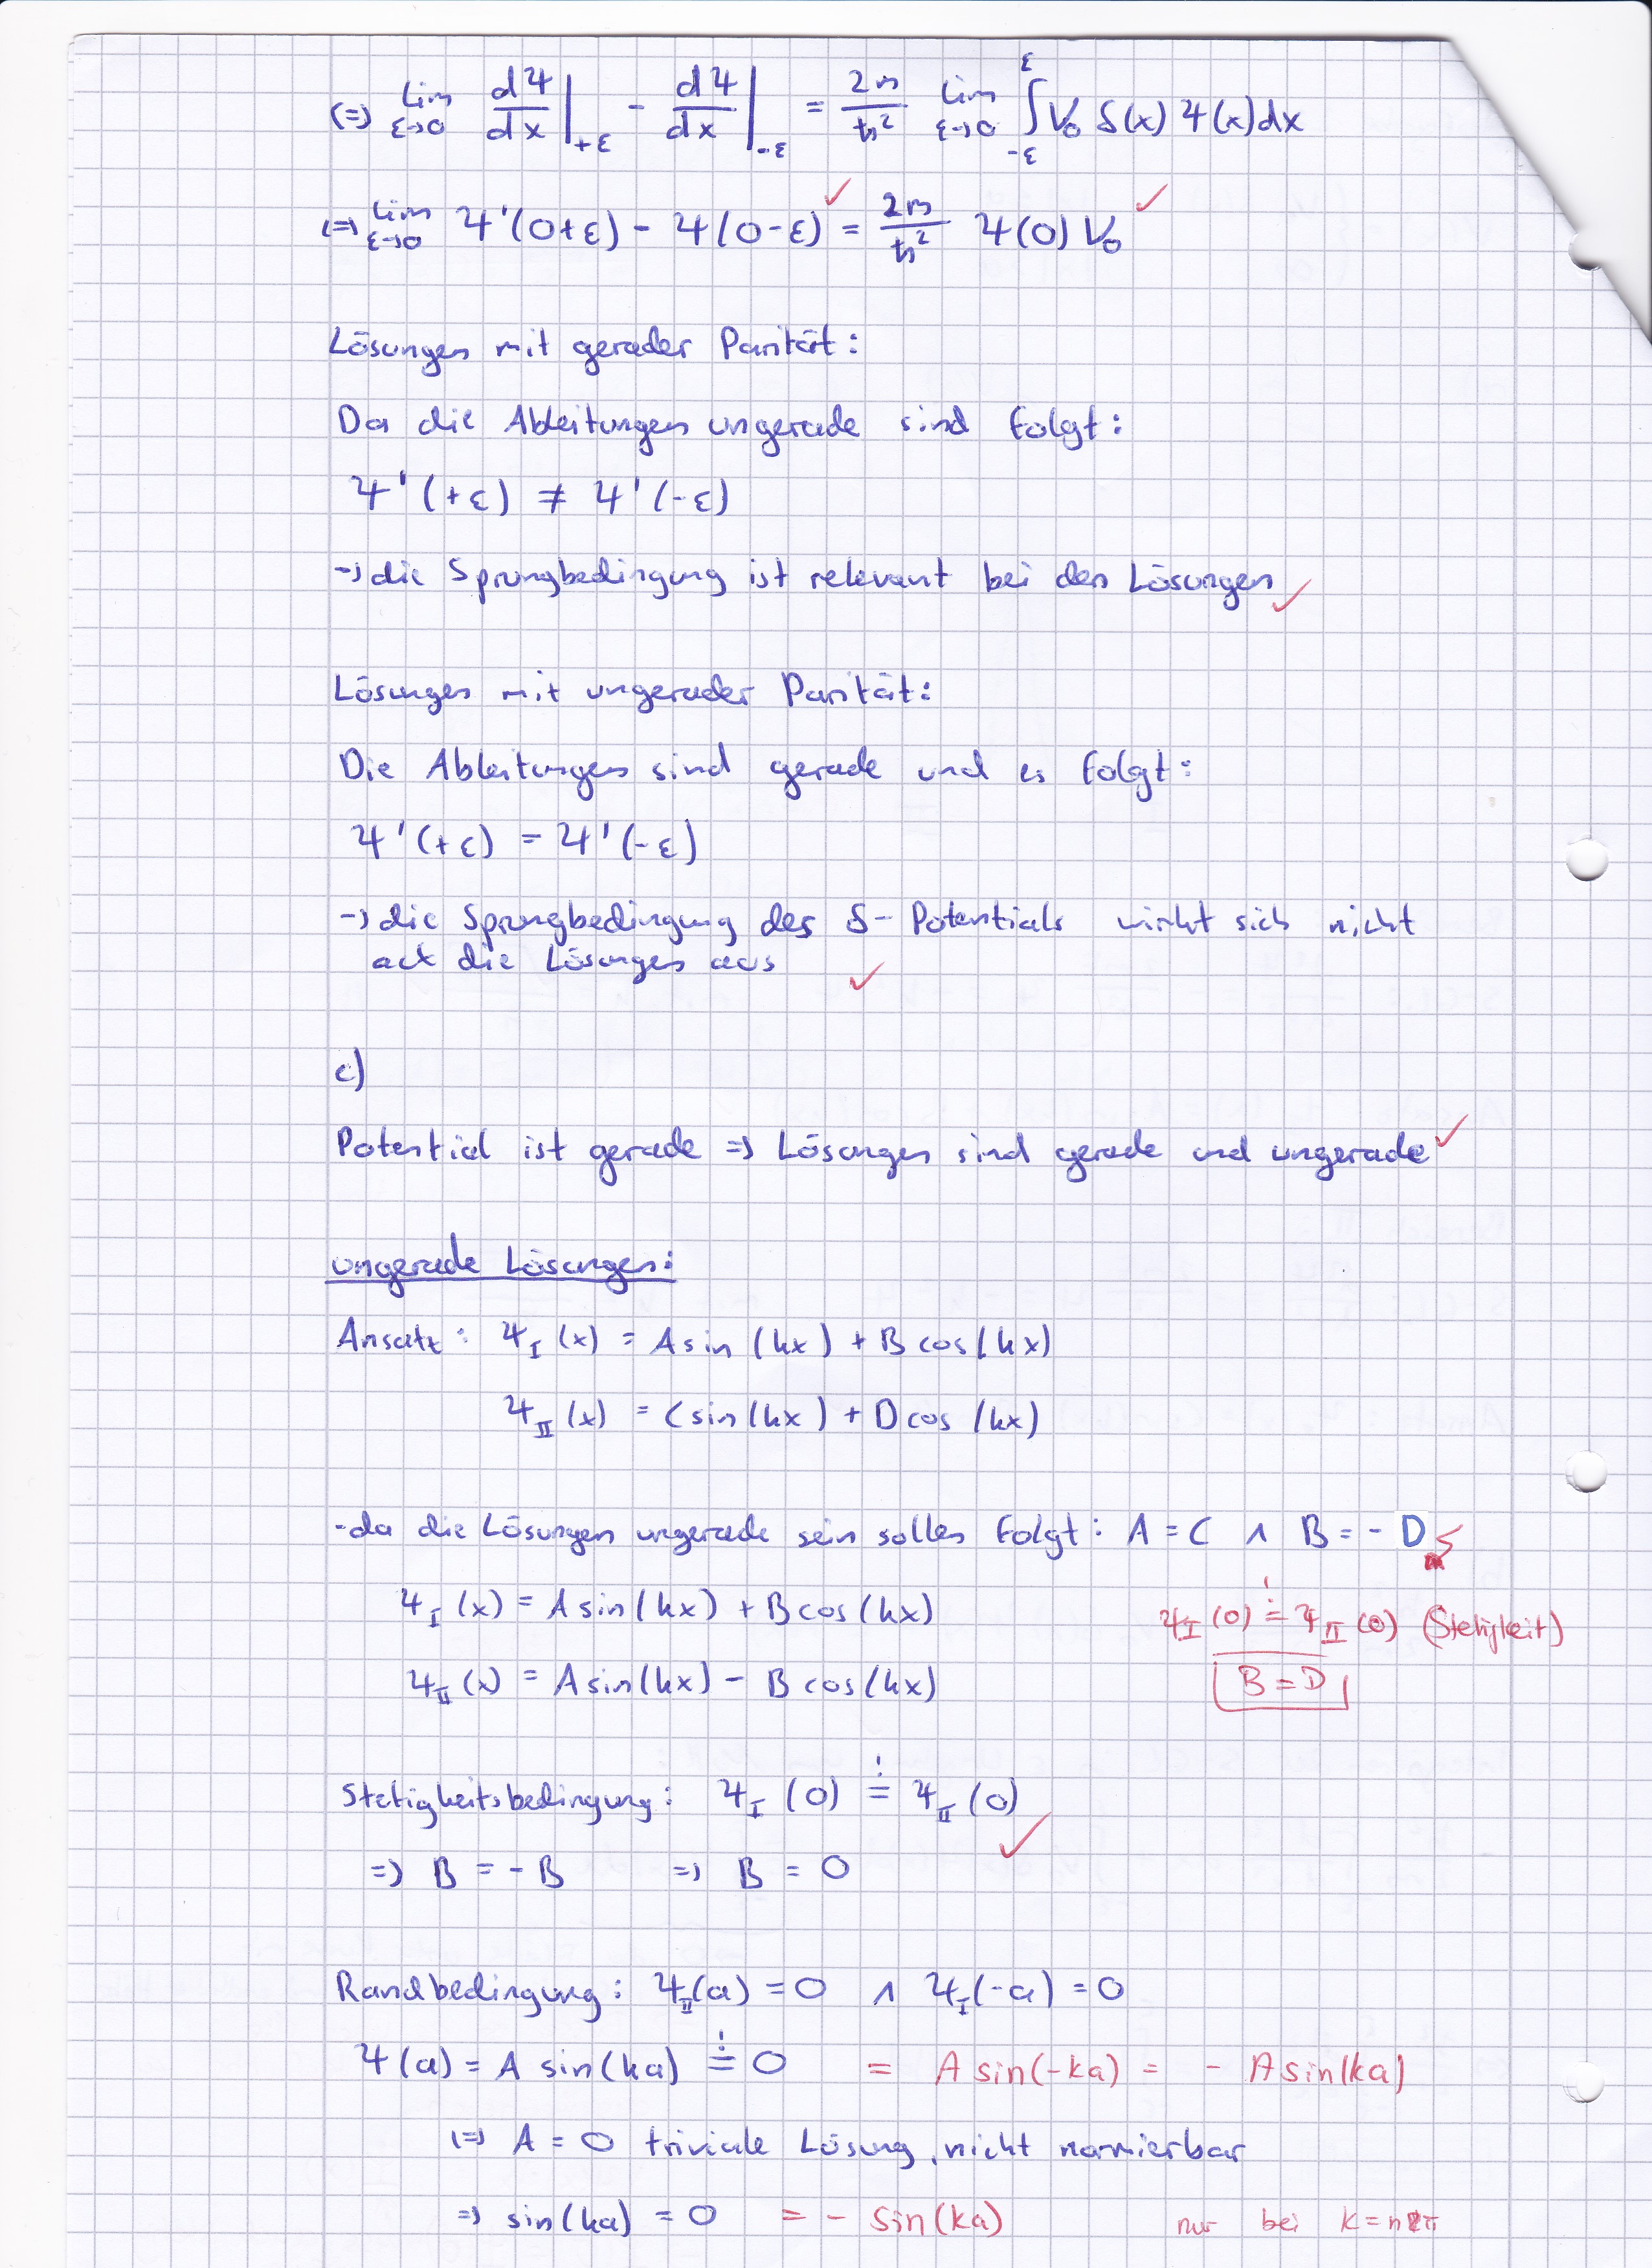 (=) lim ε→0 dΨ/dx |+ε - dΨ/dx |-ε = 2m/ħ² lim ε→0 ∫_{-ε}^{ε} V₀ δ(x) Ψ(x) dx
(=) lim ε→0 Ψ'(0+ε) - Ψ(0-ε) ✓ = 2m/ħ² Ψ(0) V₀ ✓
Lösungen mit gerader Parität:
Da die Ableitungen ungerade sind folgt:
Ψ'(+ε) ≠ Ψ'(-ε)
→ die Sprungbedingung ist relevant bei den Lösungen ✓
Lösungen mit ungerader Parität:
Die Ableitungen sind gerade und es folgt:
Ψ'(+ε) = Ψ'(-ε)
→ die Sprungbedingung des δ-Potentials wirkt sich nicht
auf die Lösungen aus ✓
c)
Potential ist gerade => Lösungen sind gerade und ungerade ✓
ungerade Lösungen:
Ansatz: Ψ_I (x) = A sin (kx) + B cos (kx)
Ψ_II (x) = C sin (kx) + D cos (kx)
- da die Lösungen ungerade sein sollen folgt: A = C ∧ B = - D
Ψ_I (x) = A sin(kx) + B cos(kx)
Ψ_I (0) =! Ψ_II (0) (Stetigkeit)
Ψ_II (x) = A sin(kx) - B cos(kx)
B = D
Stetigkeitsbedingung: Ψ_I (0) =! Ψ_II (0) ✓
=> B = - B => B = 0
Randbedingung: Ψ_II(a) = 0 ∧ Ψ_I(-a) = 0
Ψ(a) = A sin(ka) =! 0 = A sin(-ka) = - A sin(ka)
(=) A = 0 triviale Lösung, nicht normierbar
=> sin(ka) = 0 = - sin(ka) nur bei k = nπ